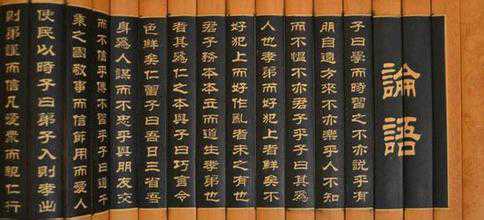 論語
子曰學而時習之不亦說乎有
朋自遠方來不亦樂乎人不知
而不慍不亦君子乎有子曰其為
人也孝弟而好犯上者鮮矣不
好犯上而好作亂者未之有也
君子務本本立而道生孝弟也
者其為仁之本與子曰巧言令
色鮮矣仁曾子曰吾日三省吾
身為人謀而不忠乎與朋友交
而不信乎傳不習乎子曰道千
乘之國敬事而信節用而愛人
使民以時子曰弟子入則孝出
則弟謹而信凡愛眾而親仁行